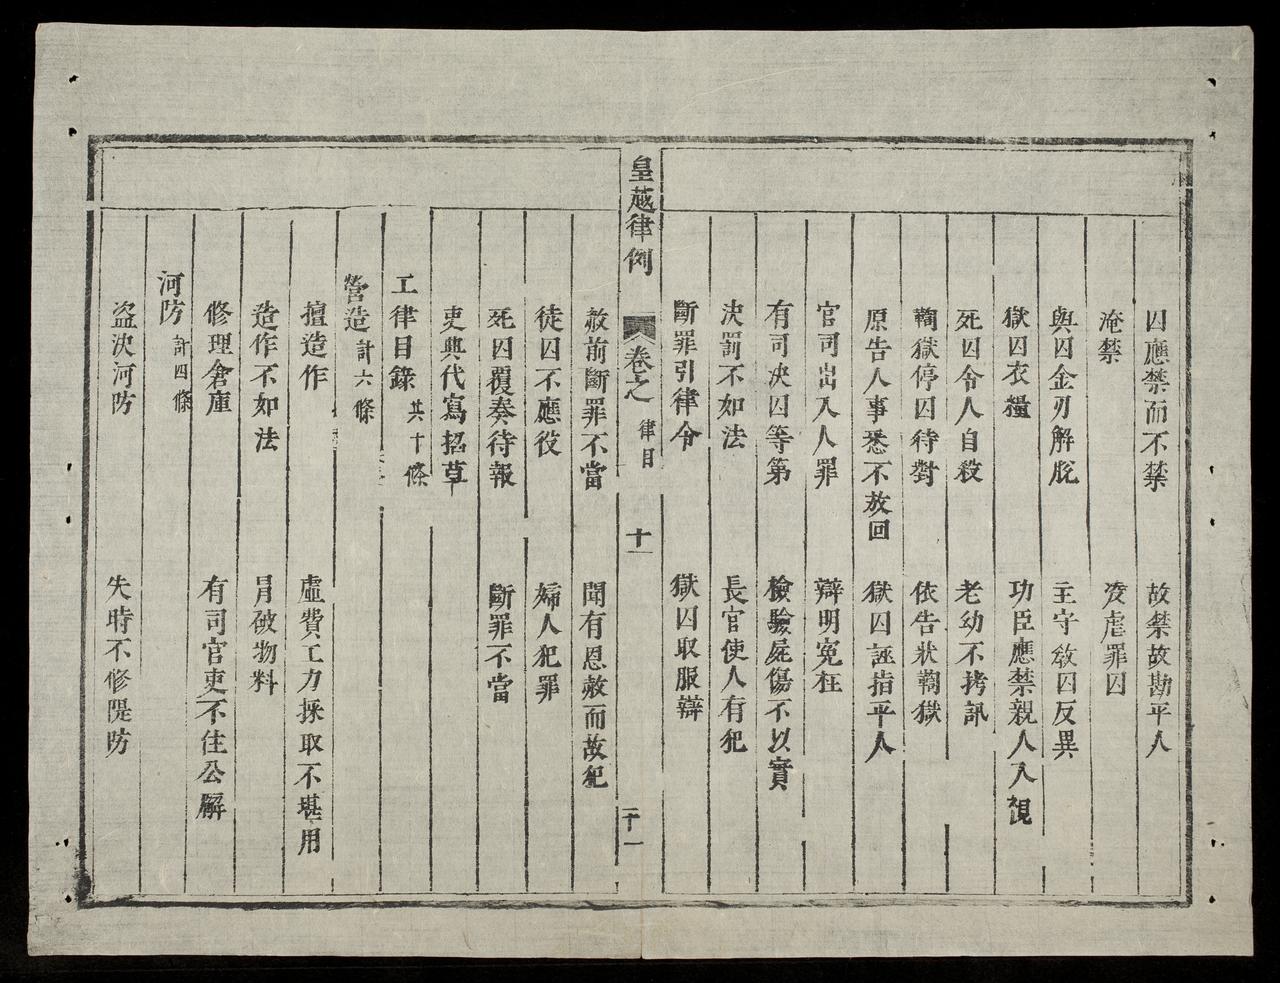 囚應禁而不禁　故禁故勘平人
淹禁　凌虐罪囚
與囚金刃解脫　主守敎囚反異
獄囚衣糧　功臣應禁親人入視
死囚令人自殺　老幼不拷訊
鞫獄停囚待對　依告狀鞫獄
原告人事悉不放回　獄囚誣指平人
官司出入人罪　辯明冤枉
有司决囚等第　檢驗屍傷不以實
决罰不如法　長官使人有犯
斷罪引律令　獄囚取服辯
皇越律例　卷之　律目　十一　二十一
赦前斷罪不當　聞有恩赦而故犯
徒囚不應役　婦人犯罪
死囚覆奏待報　斷罪不當
吏典代寫招草
工律目錄　共十條
營造　計六條
擅造作　虛費工力採取不堪用
造作不如法　冐破物料
修理倉庫　有司官吏不住公廨
河防　計四條
盜决河防　失時不修隄防